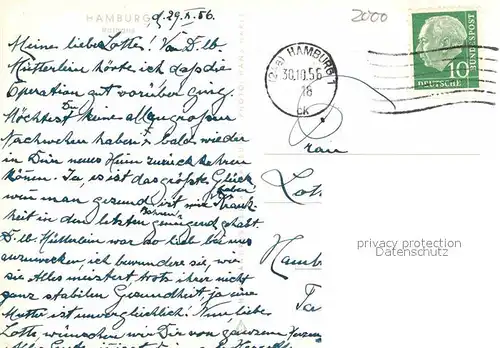 HAMBURG
d. 29.X.56.
2000
Meine liebe Lotte! Von D. lb.
Mütterlein hörte ich daß die
Operation gut vorüber ging.
Möchtest Du keine allzugroßen
Nachwehen haben u. bald wieder
in Dein neues Heim zurückkehren
können. Ja, es ist das größte Glück,
wenn man gesund ist, wir haben Krank-
heit in den letzten Jahren genügend gehabt.
D. lb. Mütterlein war so lieb bei uns
, ich bewundere sie, wie
sie Alles meistert, trotz ihrer nicht
ganz stabilen Gesundheit, ja eine
Mutter ist unvergleichlich! Nun liebe
Lotte, wünschen wir Dir von ganzem Herzen
Alles Gute
(24a) HAMBURG 1
30.10.56
18
ck
10
DEUTSCHE
BUNDESPOST
Frau
Lott
Hamb
privacy protection
Datenschutz